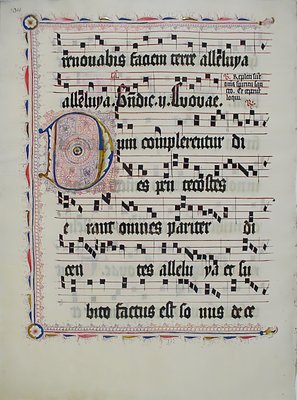 renovabis faciem terre alleluya
alleluya. Bndic. y. Lvovae.
R. Repleti sūt
oms spiritu san
cto. Et ceperūt
loqui. R.
Dum complerentur di
es pen tecostes
e rant omnes pariter di
cen tes allelu ya et su
bito factus est so nus de ce